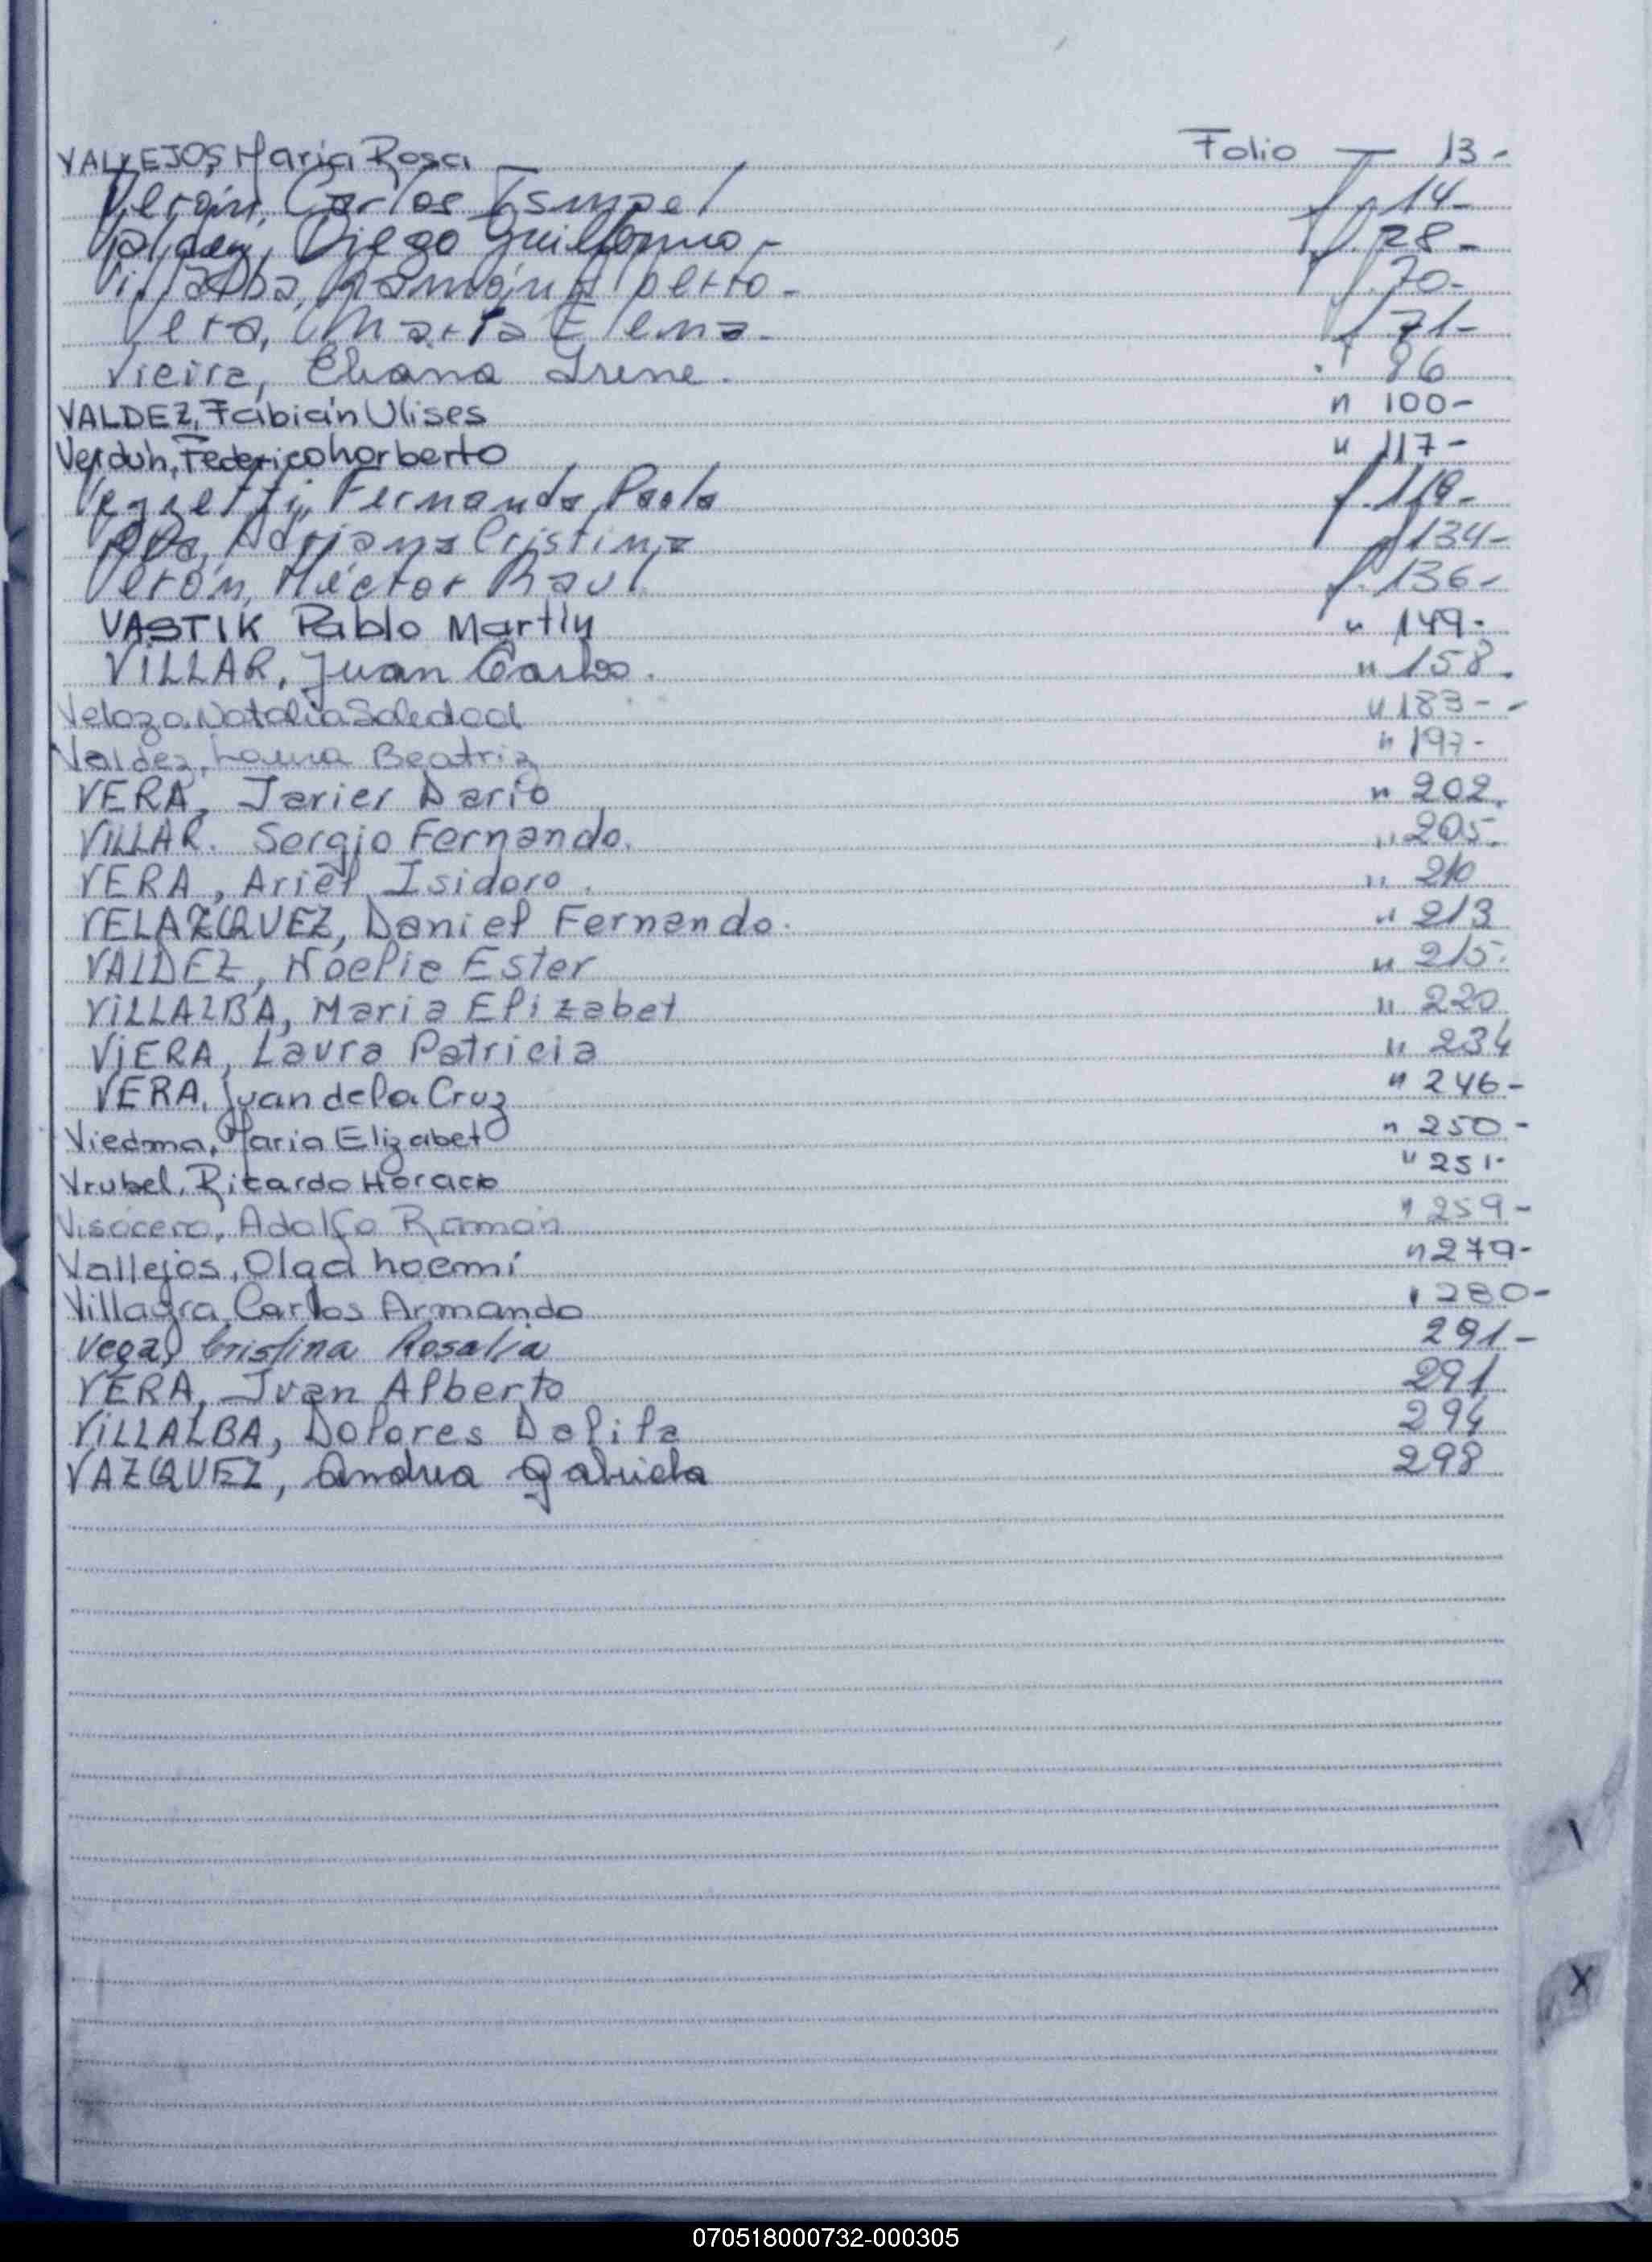 VALLEJOS, Maria Rosa Folio — 13-
Verón, Carlos Ismael f. 14-
Valdez, Diego Guillermo.- f. 28-
Villalba, Ramón Alberto.- f. 70-
Vera, María Elena.- f. 71-
Vieira, Eliana Irene. " 96
VALDEZ, Fabián Ulises " 100-
Verdún, Federico Norberto " 117-
Vezzetti, Fernando Paolo f. 118-
Adriana Cristina f. 134-
Verón, Héctor Raul. f. 136-
VASTIK Pablo Martín " 149-
VILLAR, Juan Carlos. " 158.
Velozo, Natalia Soledad " 183--
Valdez, Laura Beatriz " 197-
VERA, Javier Dario " 202.
VILLAR. Sergio Fernando. " 205.
VERA, Ariel Isidoro. " 210
VELAZQUEZ, Daniel Fernando. " 213
VALDEZ, Noelia Ester " 215.
VILLALBA, Maria Elizabet " 220
VIERA, Laura Patricia " 234
VERA, Juan de la Cruz " 246-
Viedma, Maria Elizabet " 250-
Vrubel, Ricardo Horacio " 251-
Visocero, Adolfo Ramón " 259-
Vallejos, Olga Noemí " 279-
Villagra, Carlos Armando " 280-
Vega, Cristina Rosalia 291-
VERA, Ivan Alberto 291
VILLALBA, Dolores Dalila 294
VAZQUEZ, Andrea Gabriela 298
X
070518000732-000305